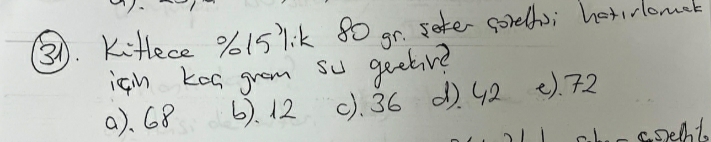 31). Kütlece %15'lik 80 gr. şeker çözeltisi hazırlamak
için kaç gram su gerekir?
a). 68 b). 12 c). 36 d). 42 e). 72